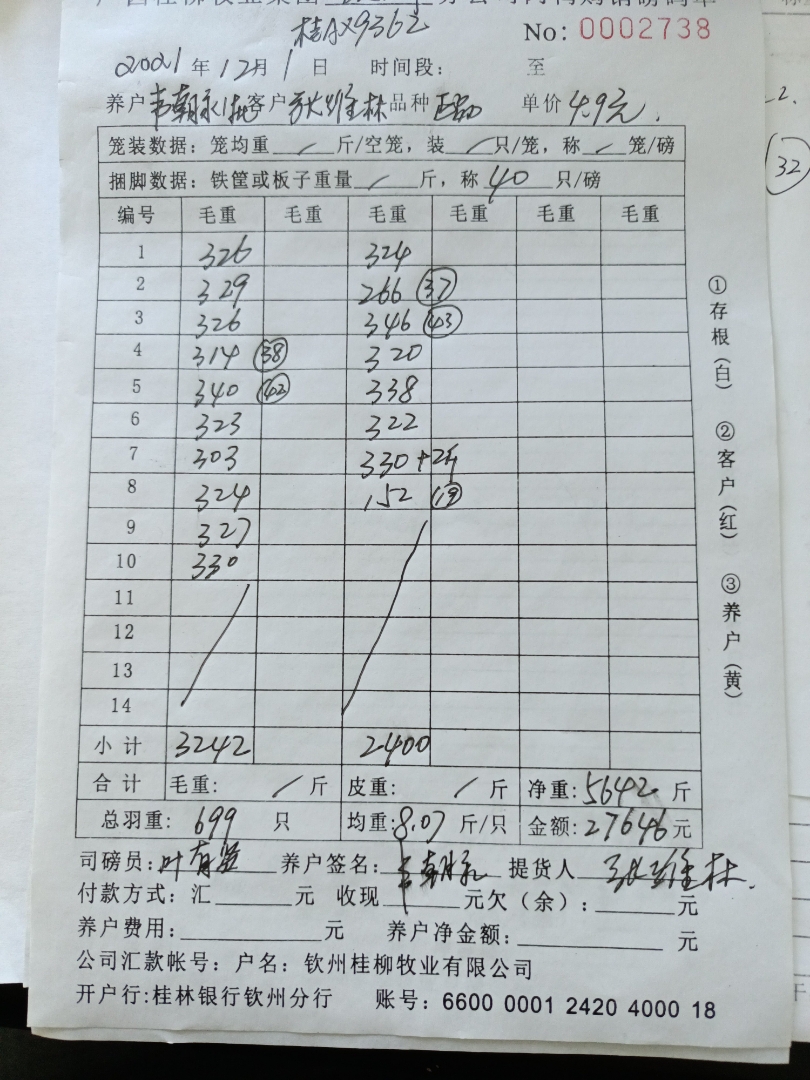 桂AX9362 No: 0002738
2021年12月1日 时间段: 至
养户 韦朝脉 客户 张维林 品种 单价 4.9元.
笼装数据: 笼均重 / 斤/空笼, 装 / 只/笼, 称 / 笼/磅
捆脚数据: 铁筐或板子重量 / 斤, 称 40 只/磅
编号 毛重 毛重 毛重 毛重 毛重 毛重
1 326 324
2 329 266 37
3 326 346 43
4 314 38 320
5 340 42 338
6 323 322
7 303 330+2斤
8 324 152 19
9 327
10 330
11
12
13
14
小计 3242 2400
合计 毛重: / 斤 皮重: / 斤 净重: 5642 斤
总羽重: 699 只 均重: 8.07 斤/只 金额: 27646 元
司磅员: 叶有 养户签名: 韦朝脉 提货人 张维林.
付款方式: 汇 元 收现 元欠(余): 元
养户费用: 元 养户净金额: 元
公司汇款帐号: 户名: 钦州桂柳牧业有限公司
开户行:桂林银行钦州分行 账号: 6600 0001 2420 4000 18
①存根(白) ②客户(红) ③养户(黄)
2.
32